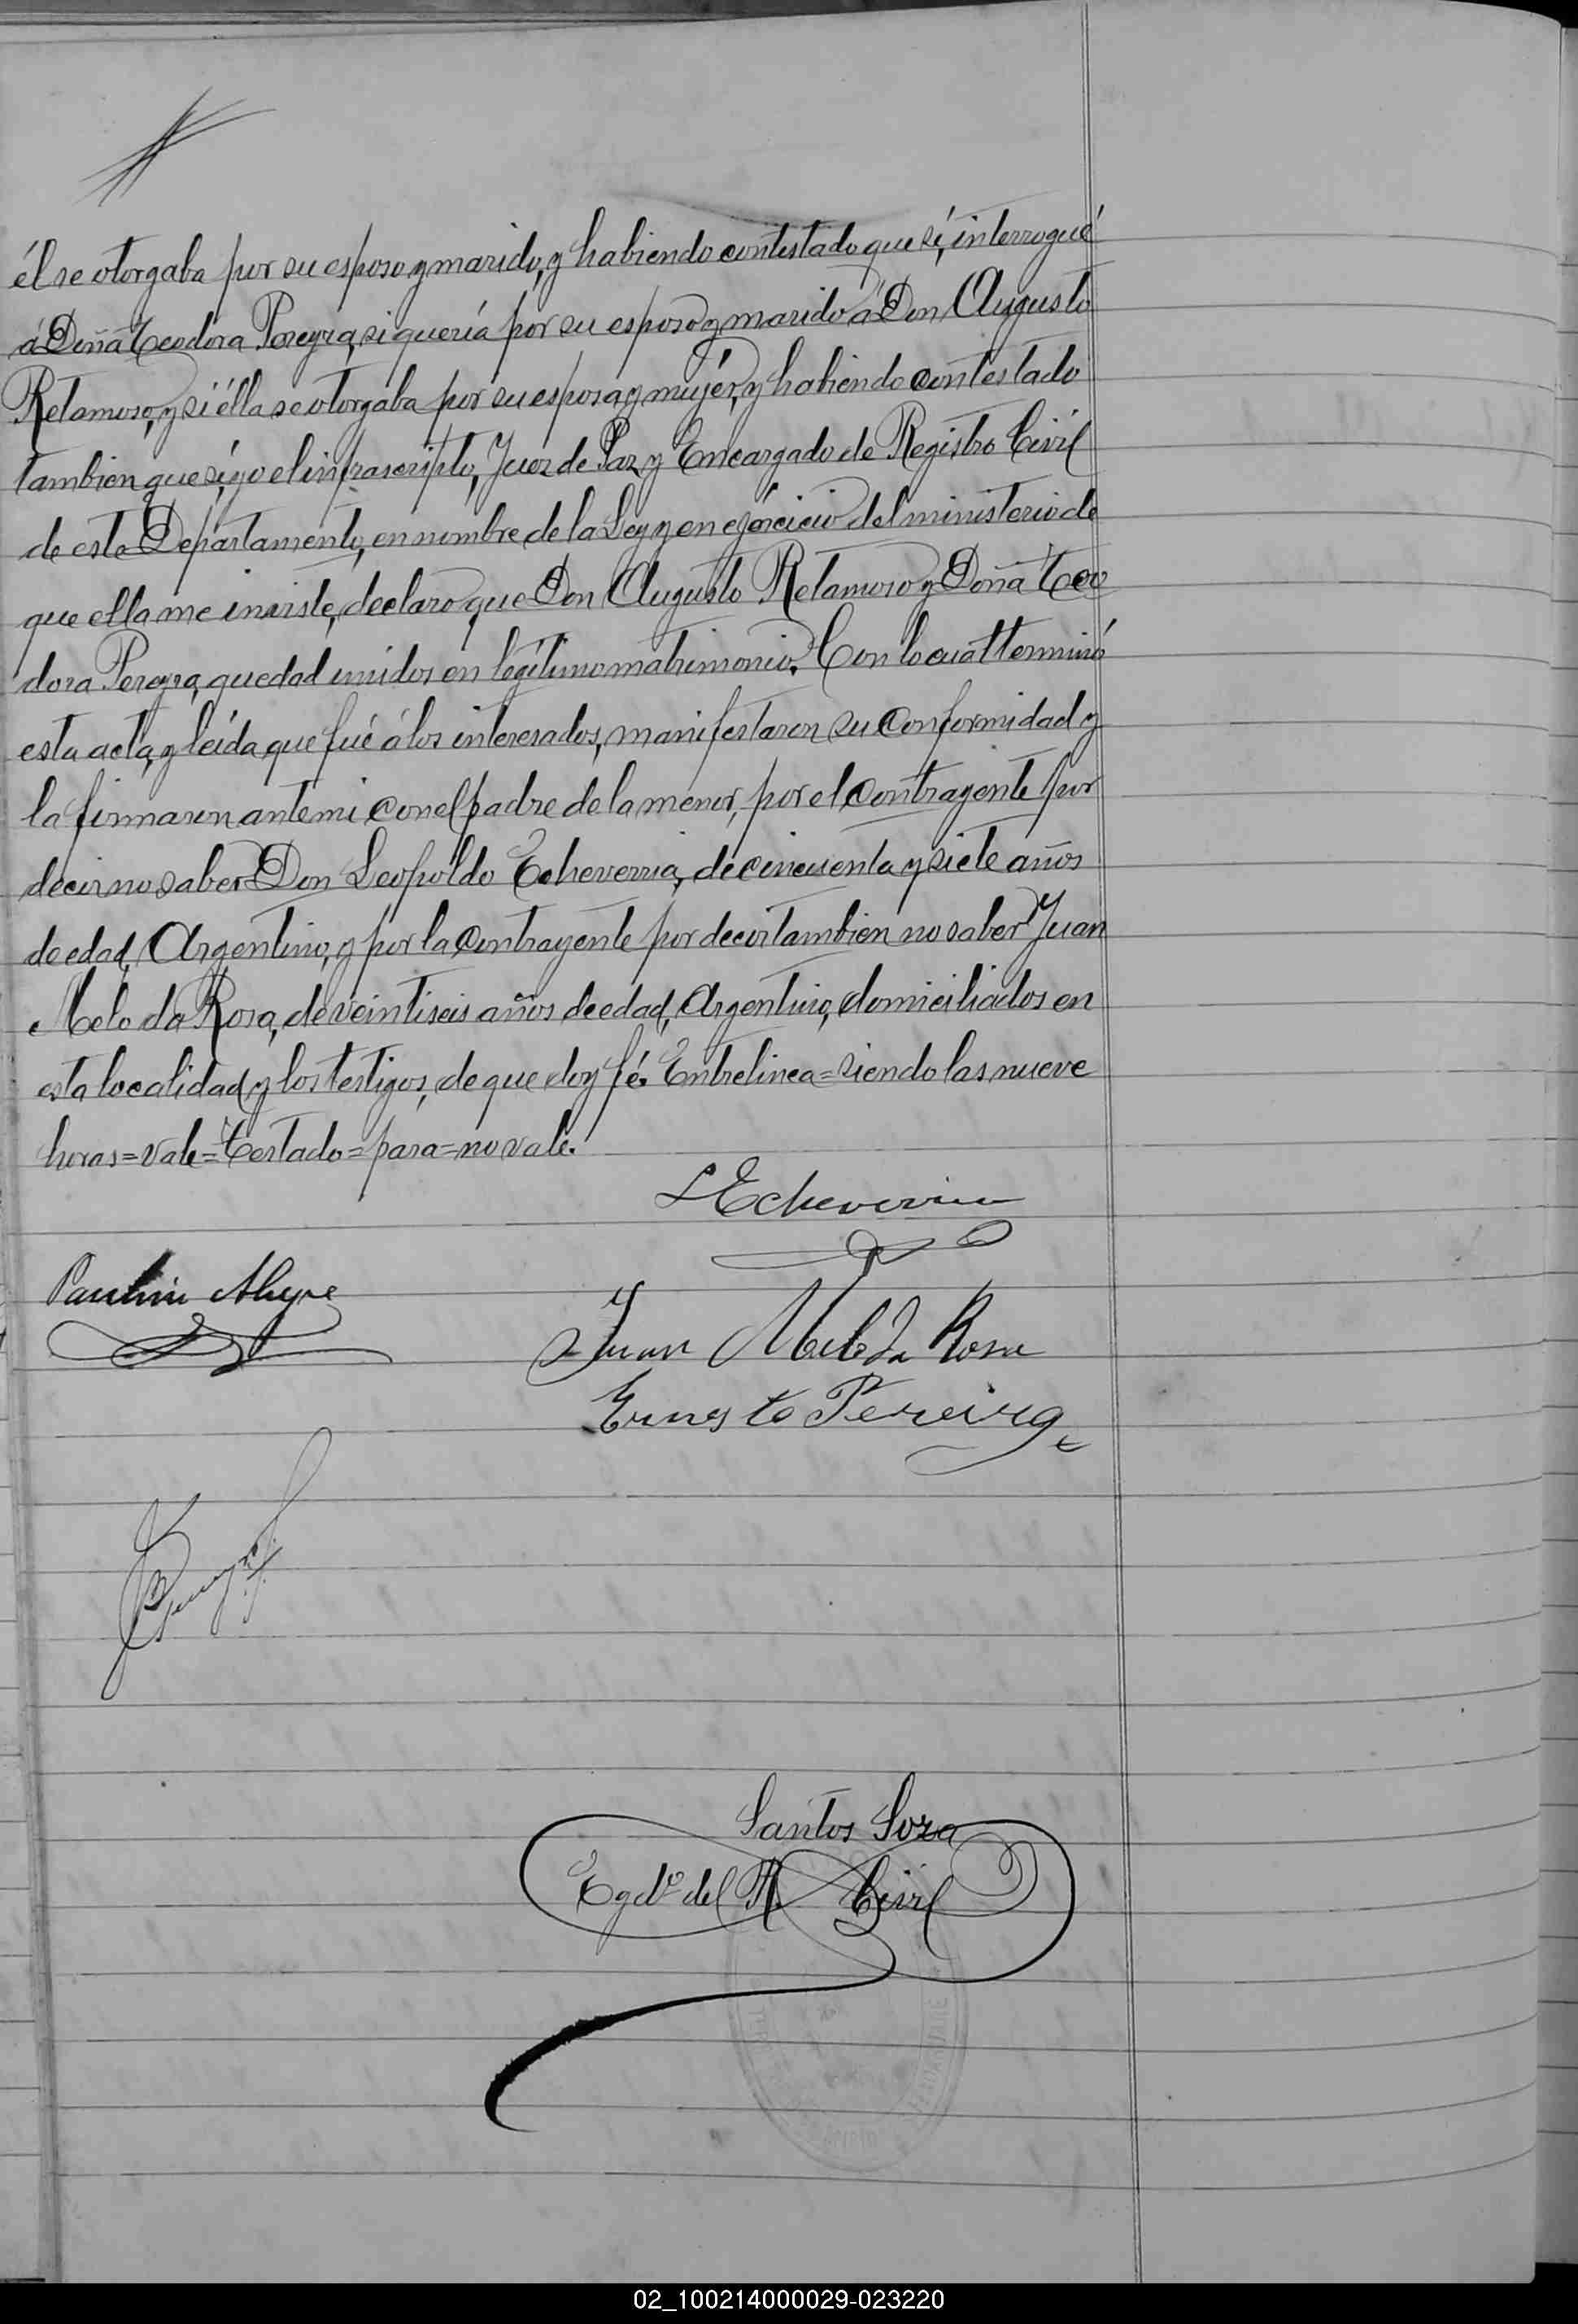 él se otorgaba por su esposo y marido, y habiendo contestado que sí, interrogué
á Doña Teodora Pereyra, si quería por su esposo y marido á Don Augusto
Retamoso, y si élla se otorgaba por su esposa y mujér, y habiendo contestado
tambien que sí, yo el infrascripto, Juez de Paz y Encargado de Registro Civil
de este Departamento, en nombre de la Ley y en ejércicio del ministerio de
que ella me inviste, declaro que Don Augusto Retamoso y Doña Teo
dora Pereyra, quedad unidos en legítimo matrimonio. Con lo cuál terminó
esta acta, y leída que fué á los interesados, manifestaron su conformidad y
la firmaron ante mi con el padre de la menor, por el contrayente por
decir no saber Don Leopoldo Echeverria, de cincuenta y siete años
de edad, Argentino, y por la contrayente por decir tambien no saber Juan
Melo da Rosa, de veintiseis años de edad, Argentino, domiciliados en
esta localidad y los testigos, de que doy fé. Entrelinea=siendo las nueve
horas=vale=Testado=para=no vale.
L Echeverria
Paulino Alegre
Juan Melo da Rosa
Ernesto Pereira
Santos Soza
Egdo. del R. Civil
02_100214000029-023220